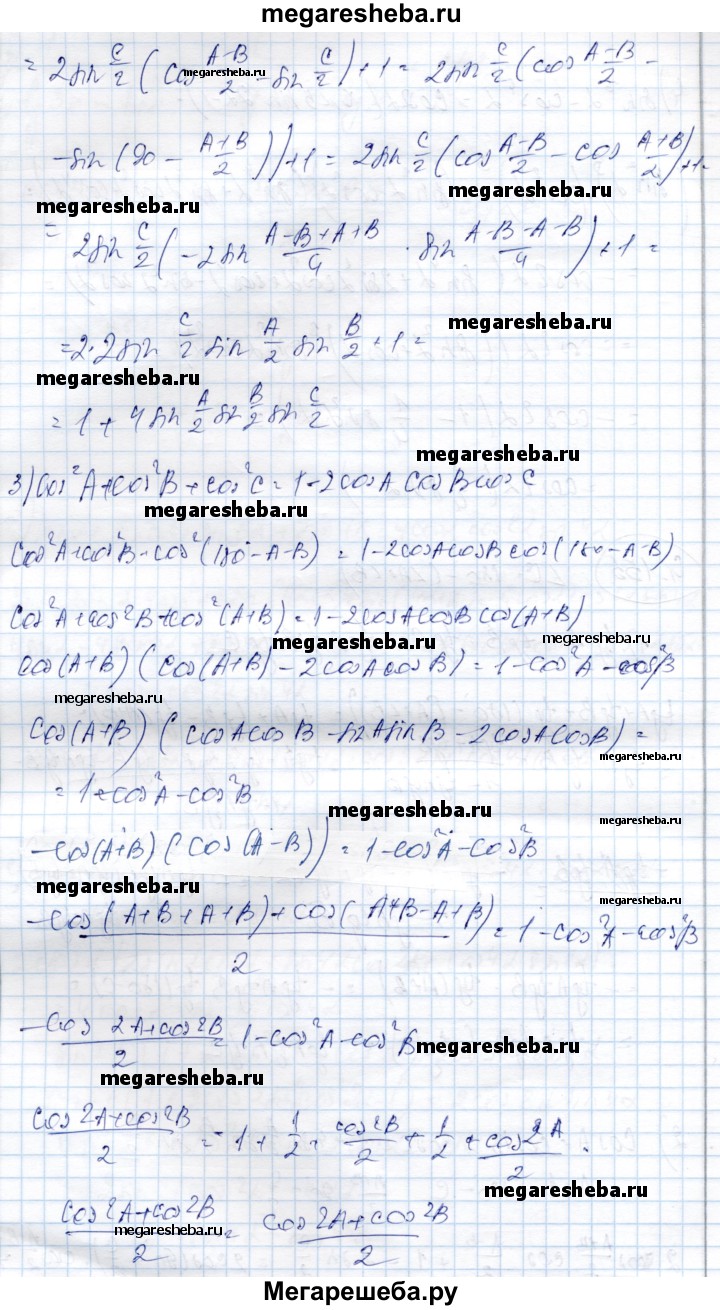 megaresheba.ru
= 2sin C/2 (cos (A-B)/2 - sin C/2) + 1 = 2sin C/2 (cos (A-B)/2 -
megaresheba.ru
- sin (90 - (A+B)/2)) + 1 = 2sin C/2 (cos (A-B)/2 - cos (A+B)/2) + 1 =
megaresheba.ru
megaresheba.ru
= 2sin C/2 (-2sin (A-B+A+B)/4 · sin (A-B-A-B)/4) + 1 =
megaresheba.ru
= 2·2sin C/2 sin A/2 sin B/2 + 1 =
megaresheba.ru
= 1 + 4sin A/2 sin B/2 sin C/2
megaresheba.ru
3) cos²A + cos²B + cos²C = 1 - 2cosA cosB cos C
megaresheba.ru
cos²A + cos²B + cos²(180° - A - B) = 1 - 2cosA cosB cos(180 - A - B)
cos²A + cos²B + cos²(A+B) = 1 - 2cosA cosB cos(A+B)
megaresheba.ru
megaresheba.ru
cos(A+B) (cos(A+B) - 2cosA cosB) = 1 - cos²A - cos²B
megaresheba.ru
cos(A+B) (cosA cosB - sinA sinB - 2cosA cosB) =
megaresheba.ru
= 1 + cos²A - cos²B
megaresheba.ru
megaresheba.ru
- cos(A+B) (cos(A-B)) = 1 - cos²A - cos²B
megaresheba.ru
- (cos(A+B+A+B) + cos(A+B-A+B))/2 = 1 - cos²A - cos²B
- (cos 2A + cos 2B)/2 = 1 - cos²A - cos²B
megaresheba.ru
megaresheba.ru
(cos 2A + cos 2B)/2 = -1 + 1/2 + cos 2B/2 + 1/2 + cos 2A/2
megaresheba.ru
(cos 2A + cos 2B)/2 = (cos 2A + cos 2B)/2
megaresheba.ru
Мегарешеба.ру